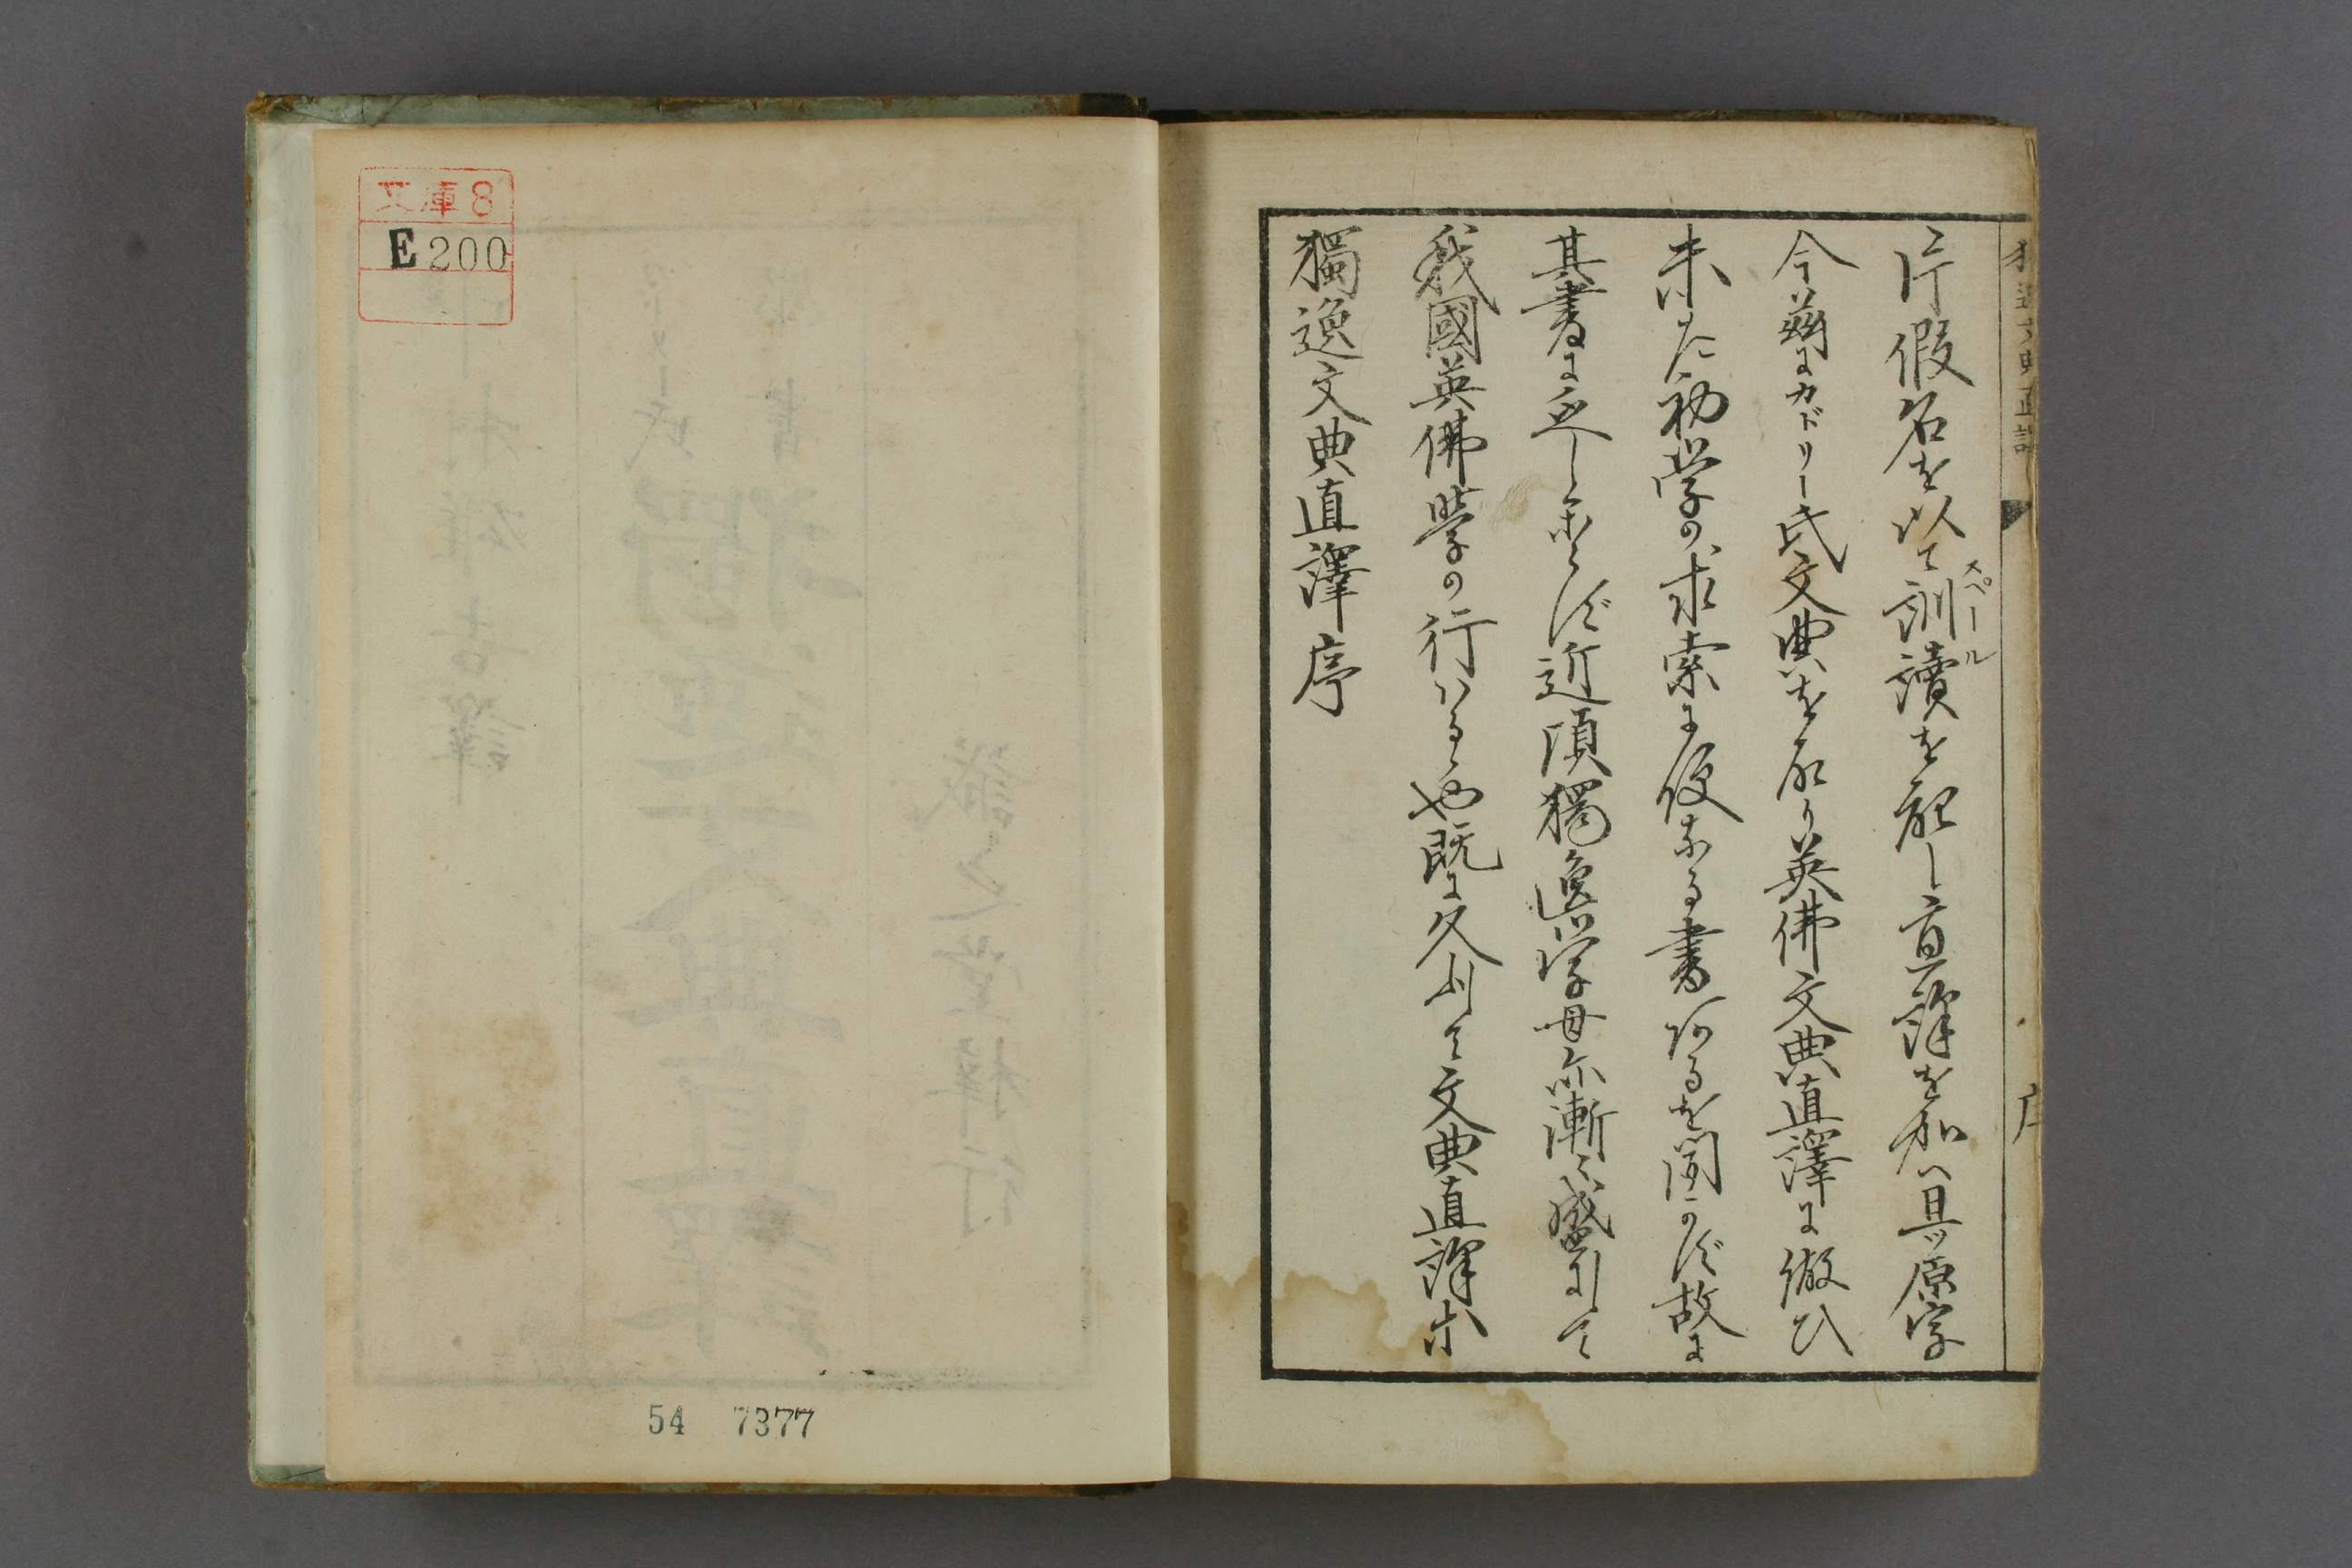 文庫8
E200
獨逸文典直譯序
我國英佛學の行ハるゝや既に久うして文典直譯亦
其書に乏しからず近頃獨逸学毋亦漸く盛にして
未た初学の求索に便なる書あるを聞かず故に
今茲にカドリー氏文典を取り英佛文典直譯に倣ひ
片假名を以て訓讀を配し直譯を加へ且ツ原字
スペール
序
54 7377